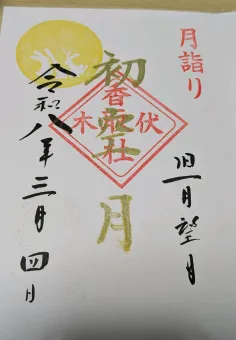 月詣り
望月
初
月
香取社
伏木
令和八年三月四日